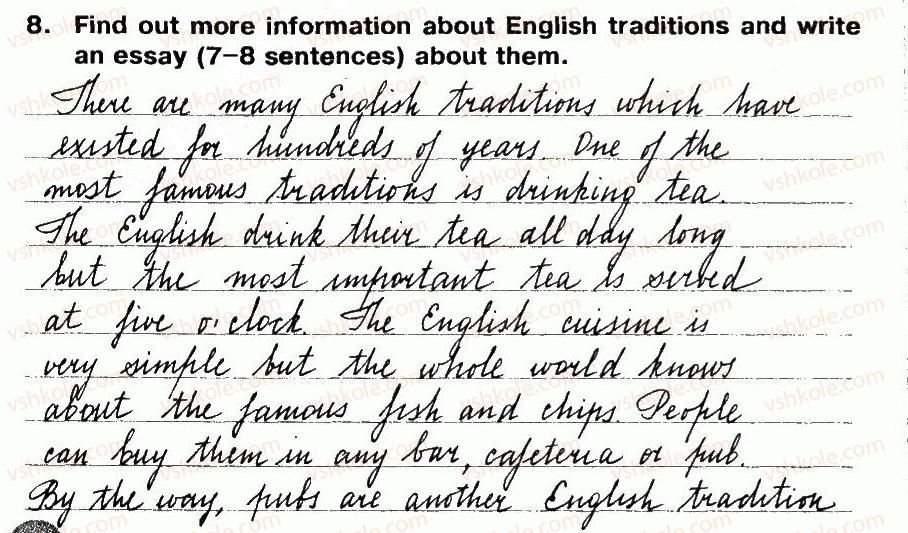 8. Find out more information about English traditions and write
an essay (7–8 sentences) about them.
There are many English traditions which have
existed for hundreds of years. One of the
most famous traditions is drinking tea.
The English drink their tea all day long
but the most important tea is served
at five o'clock. The English cuisine is
very simple but the whole world knows
about the famous fish and chips. People
can buy them in any bar, cafeteria or pub.
By the way, pubs are another English tradition